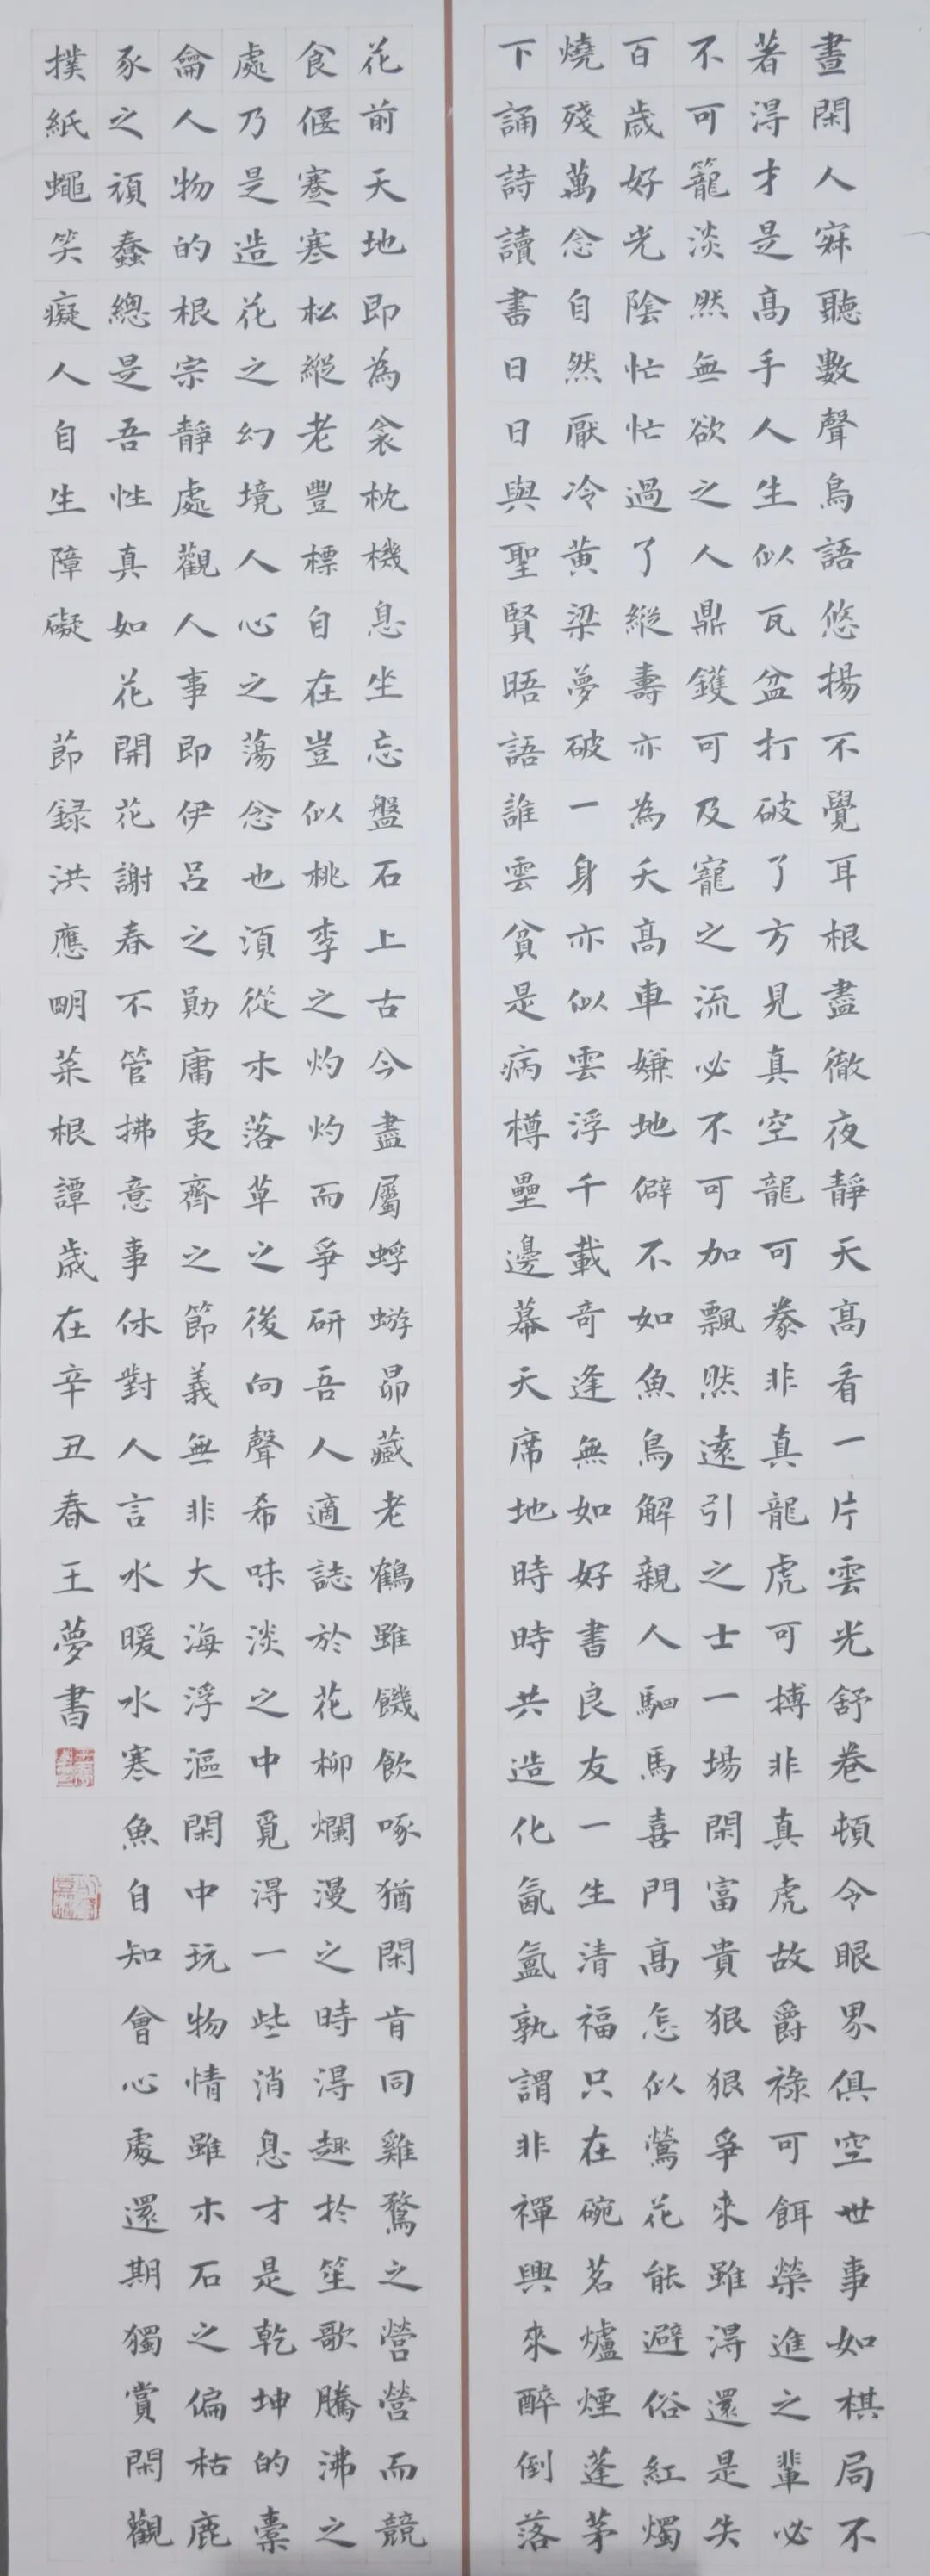 晝閑人寂聽數聲鳥語悠揚不覺耳根盡徹夜靜天高看一片雲光舒卷頓令眼界俱空世事如棋局不
著得才是高手人生似瓦盆打破了方見真空龍可豢非真龍虎可搏非真虎故爵祿可餌榮進之輩必
不可籠淡然無欲之人鼎鑊可及寵之流必不可加飄然遠引之士一場閑富貴狠狠爭來雖得還是失
百歲好光陰忙忙過了縱壽亦為夭高車嫌地僻不如魚鳥解親人駟馬喜門高怎似鶯花能避俗紅燭
燒殘萬念自然厭冷黃梁夢破一身亦似雲浮千載奇逢無如好書良友一生清福只在碗茗爐煙蓬茅
下誦詩讀書日日與聖賢晤語誰雲貧是病樽壘邊幕天席地時時共造化氤氳孰謂非禪興來醉倒落
花前天地即為衾枕機息坐忘盤石上古今盡屬蜉蝣昂藏老鶴雖饑飲啄猶閑肯同雞鶩之營營而競
食偃蹇寒松縱老豐標自在豈似桃李之灼灼而爭研吾人適誌於花柳爛漫之時得趣於笙歌騰沸之
處乃是造花之幻境人心之蕩念也須從木落草之後向聲希味淡之中覓得一些消息才是乾坤的橐
龠人物的根宗靜處觀人事即伊呂之勛庸夷齊之節義無非大海浮漚閑中玩物情雖木石之偏枯鹿
豕之頑蠢總是吾性真如花開花謝春不管拂意事休對人言水暖水寒魚自知會心處還期獨賞閑觀
撲紙蠅笑癡人自生障礙 節錄洪應明菜根譚歲在辛丑春王夢書